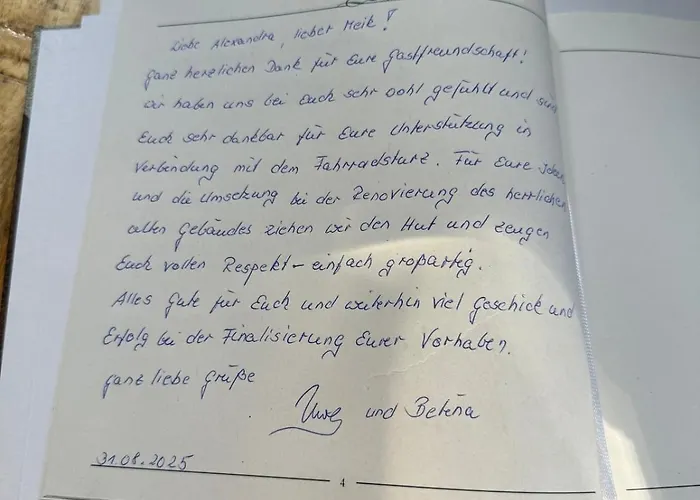 Liebe Alexandra, lieber Meik!
Ganz herzlichen Dank für Eure Gastfreundschaft!
Wir haben uns bei Euch sehr wohl gefühlt und sind
Euch sehr dankbar für Eure Unterstützung in
Verbindung mit dem Fahrradsturz. Für Eure Ideen
und die Umsetzung bei der Renovierung des herrlichen
alten Gebäudes ziehen wir den Hut und zeugen
Euch vollen Respekt – einfach großartig.
Alles Gute für Euch und weiterhin viel Geschick und
Erfolg bei der Finalisierung Eurer Vorhaben.
Ganz liebe Grüße
Uwe und Betina
31.08.2025
4